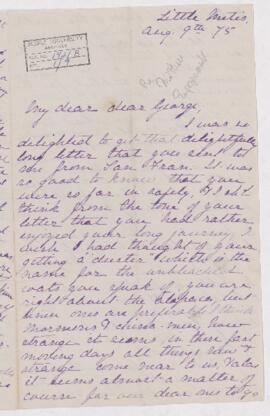 Little Metis,
Aug. 9th 75
McGILL UNIVERSITY
ARCHIVES
ACC. NO.
My dear dear George,
I was so
delighted to get that delightfully
long letter that you sent to
me from San Fran. It was
so good to know that you
were so far in safety. I sh'd
think from the tone of your
letter that you had rather
enjoyed your long journey. I
wish I had thought of your
getting a "duster" which is the
name for the unbleached
coats you speak of, you are
right about the alpaca, but
linen ones are preferable I think
Mormons & china-men, how
strange it seems, in these fast
moving days all things new &
strange come near to us,
it seems almost a matter of
course for our dear ones to go